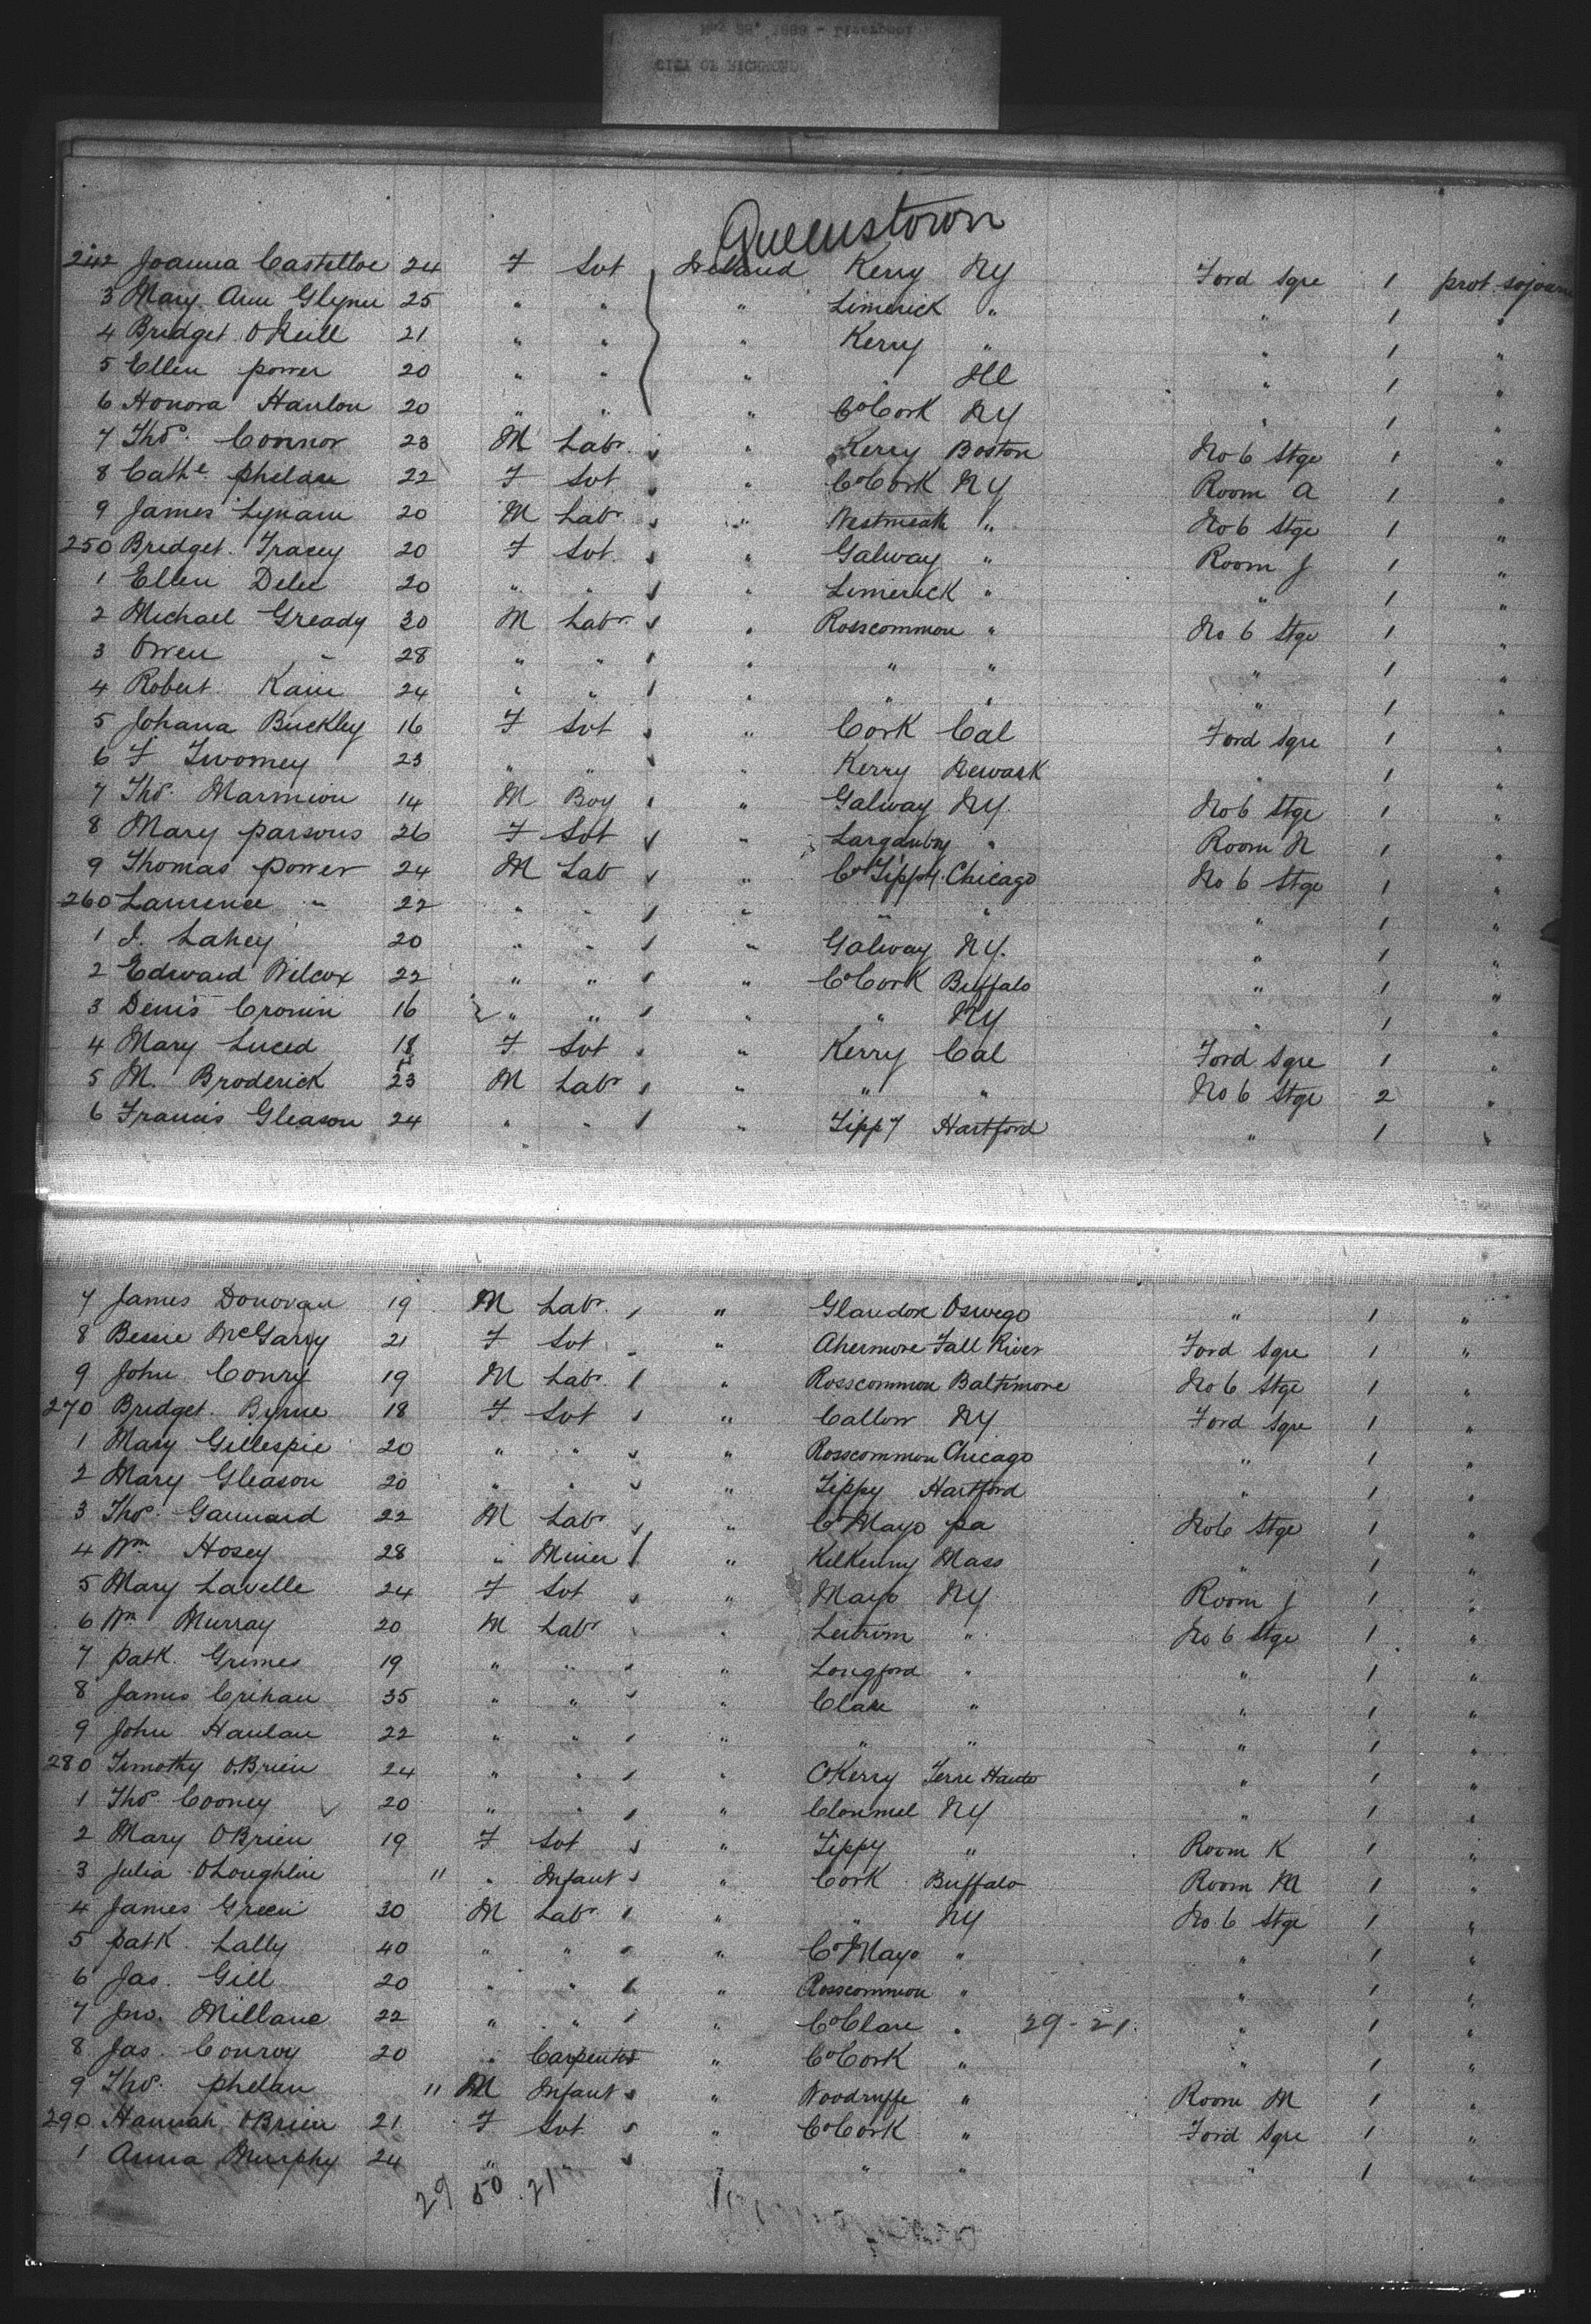 May 28, 1889 - Liverpool
CITY OF RICHMOND
Queenstown
242 Joanna Castelloe 24 F Svt Ireland Kerry NY Ford Sqre 1 prot. sojourn
3 Mary Ann Glynn 25 " " " Limerick " " 1 "
4 Bridget O'Neill 21 " " " Kerry " " 1 "
5 Ellen Power 20 " " " " Ill " 1 "
6 Honora Hanlon 20 " " " Co Cork NY " 1 "
7 Thos. Connor 23 M Labr " Kerry Boston No 6 Stge 1 "
8 Cathe Phelan 22 F Svt " Co Cork NY Room A 1 "
9 James Lynam 20 M Labr " Westmeath " No 6 Stge 1 "
250 Bridget Tracey 20 F Svt " Galway " Room J 1 "
1 Ellen Delee 20 " " " Limerick " " 1 "
2 Michael Gready 30 M Labr " Rosscommon " No 6 Stge 1 "
3 Owen " 28 " " " " " " 1 "
4 Robert Kain 24 " " " " " " 1 "
5 Johana Buckley 16 F Svt " Cork Cal Ford Sqre 1 "
6 F Twomey 23 " " " Kerry Newark " 1 "
7 Thos. Marmion 14 M Boy " Galway NY. No 6 Stge 1 "
8 Mary Parsons 26 F Svt " " Room N 1 "
9 Thomas Power 24 M Lab " Co Tippy. Chicago No 6 Stge 1 "
260 Laurence " 22 " " " " " " 1 "
1 J. Lahey 20 " " " Galway NY. " 1 "
2 Edward Wilcox 22 " " " Co Cork Buffalo " 1 "
3 Denis Cronin 16 " " " " NY " 1 "
4 Mary Luced 18 F Svt " Kerry Cal Ford Sqre 1 "
5 M. Broderick 23 M Labr " " " No 6 Stge 2 "
6 Francis Gleason 24 " " " Tippy Hartford " 1 "
7 James Donovan 19 M Labr " Oswego " 1 "
8 Bessie McGarry 21 F Svt " Fall River Ford Sqre 1 "
9 John Conry 19 M Labr " Rosscommon Baltimore No 6 Stge 1 "
270 Bridget Byrne 18 F Svt " Callow NY Ford Sqre 1 "
1 Mary Gillespie 20 " " " Rosscommon Chicago " 1 "
2 Mary Gleason 20 " " " Tippy Hartford " 1 "
3 Thos. Gaunard 22 M Labr " Co Mayo Pa No 6 Stge 1 "
4 Wm Hosey 28 " Miner " Kilkenny Mass " 1 "
5 Mary Lavelle 24 F Svt " Mayo NY Room J 1 "
6 Wm Murray 20 M Labr " Leitrim " No 6 Stge 1 "
7 Patk. Grimes 19 " " " Longford " " 1 "
8 James Crihan 35 " " " Clare " " 1 "
9 John Hanlan 22 " " " " " " 1 "
280 Timothy O'Brien 24 " " " C Kerry Terre Haute " 1 "
1 Thos. Cooney 20 " " " Clonmel NY " 1 "
2 Mary O'Brien 19 F Svt " Tippy " Room K 1 "
3 Julia O'Loughlin 11 " Infant " Cork Buffalo Room M 1 "
4 James Green 30 M Labr " " NY No 6 Stge 1 "
5 Patk. Lally 40 " " " Co Mayo " " 1 "
6 Jas. Gill 20 " " " Rosscommon " " 1 "
7 Jno. Millane 22 " " " Co Clare " 29-21. " 1 "
8 Jas. Conroy 20 " Carpenter " Co Cork " " 1 "
9 Thos. Phelan 11 M Infant " Woodruffe " Room M 1 "
290 Hannah O'Brien 21 F Svt " Co Cork " Ford Sqre 1 "
1 Anna Murphy 24 " " " " " " 1 "
29 50 21